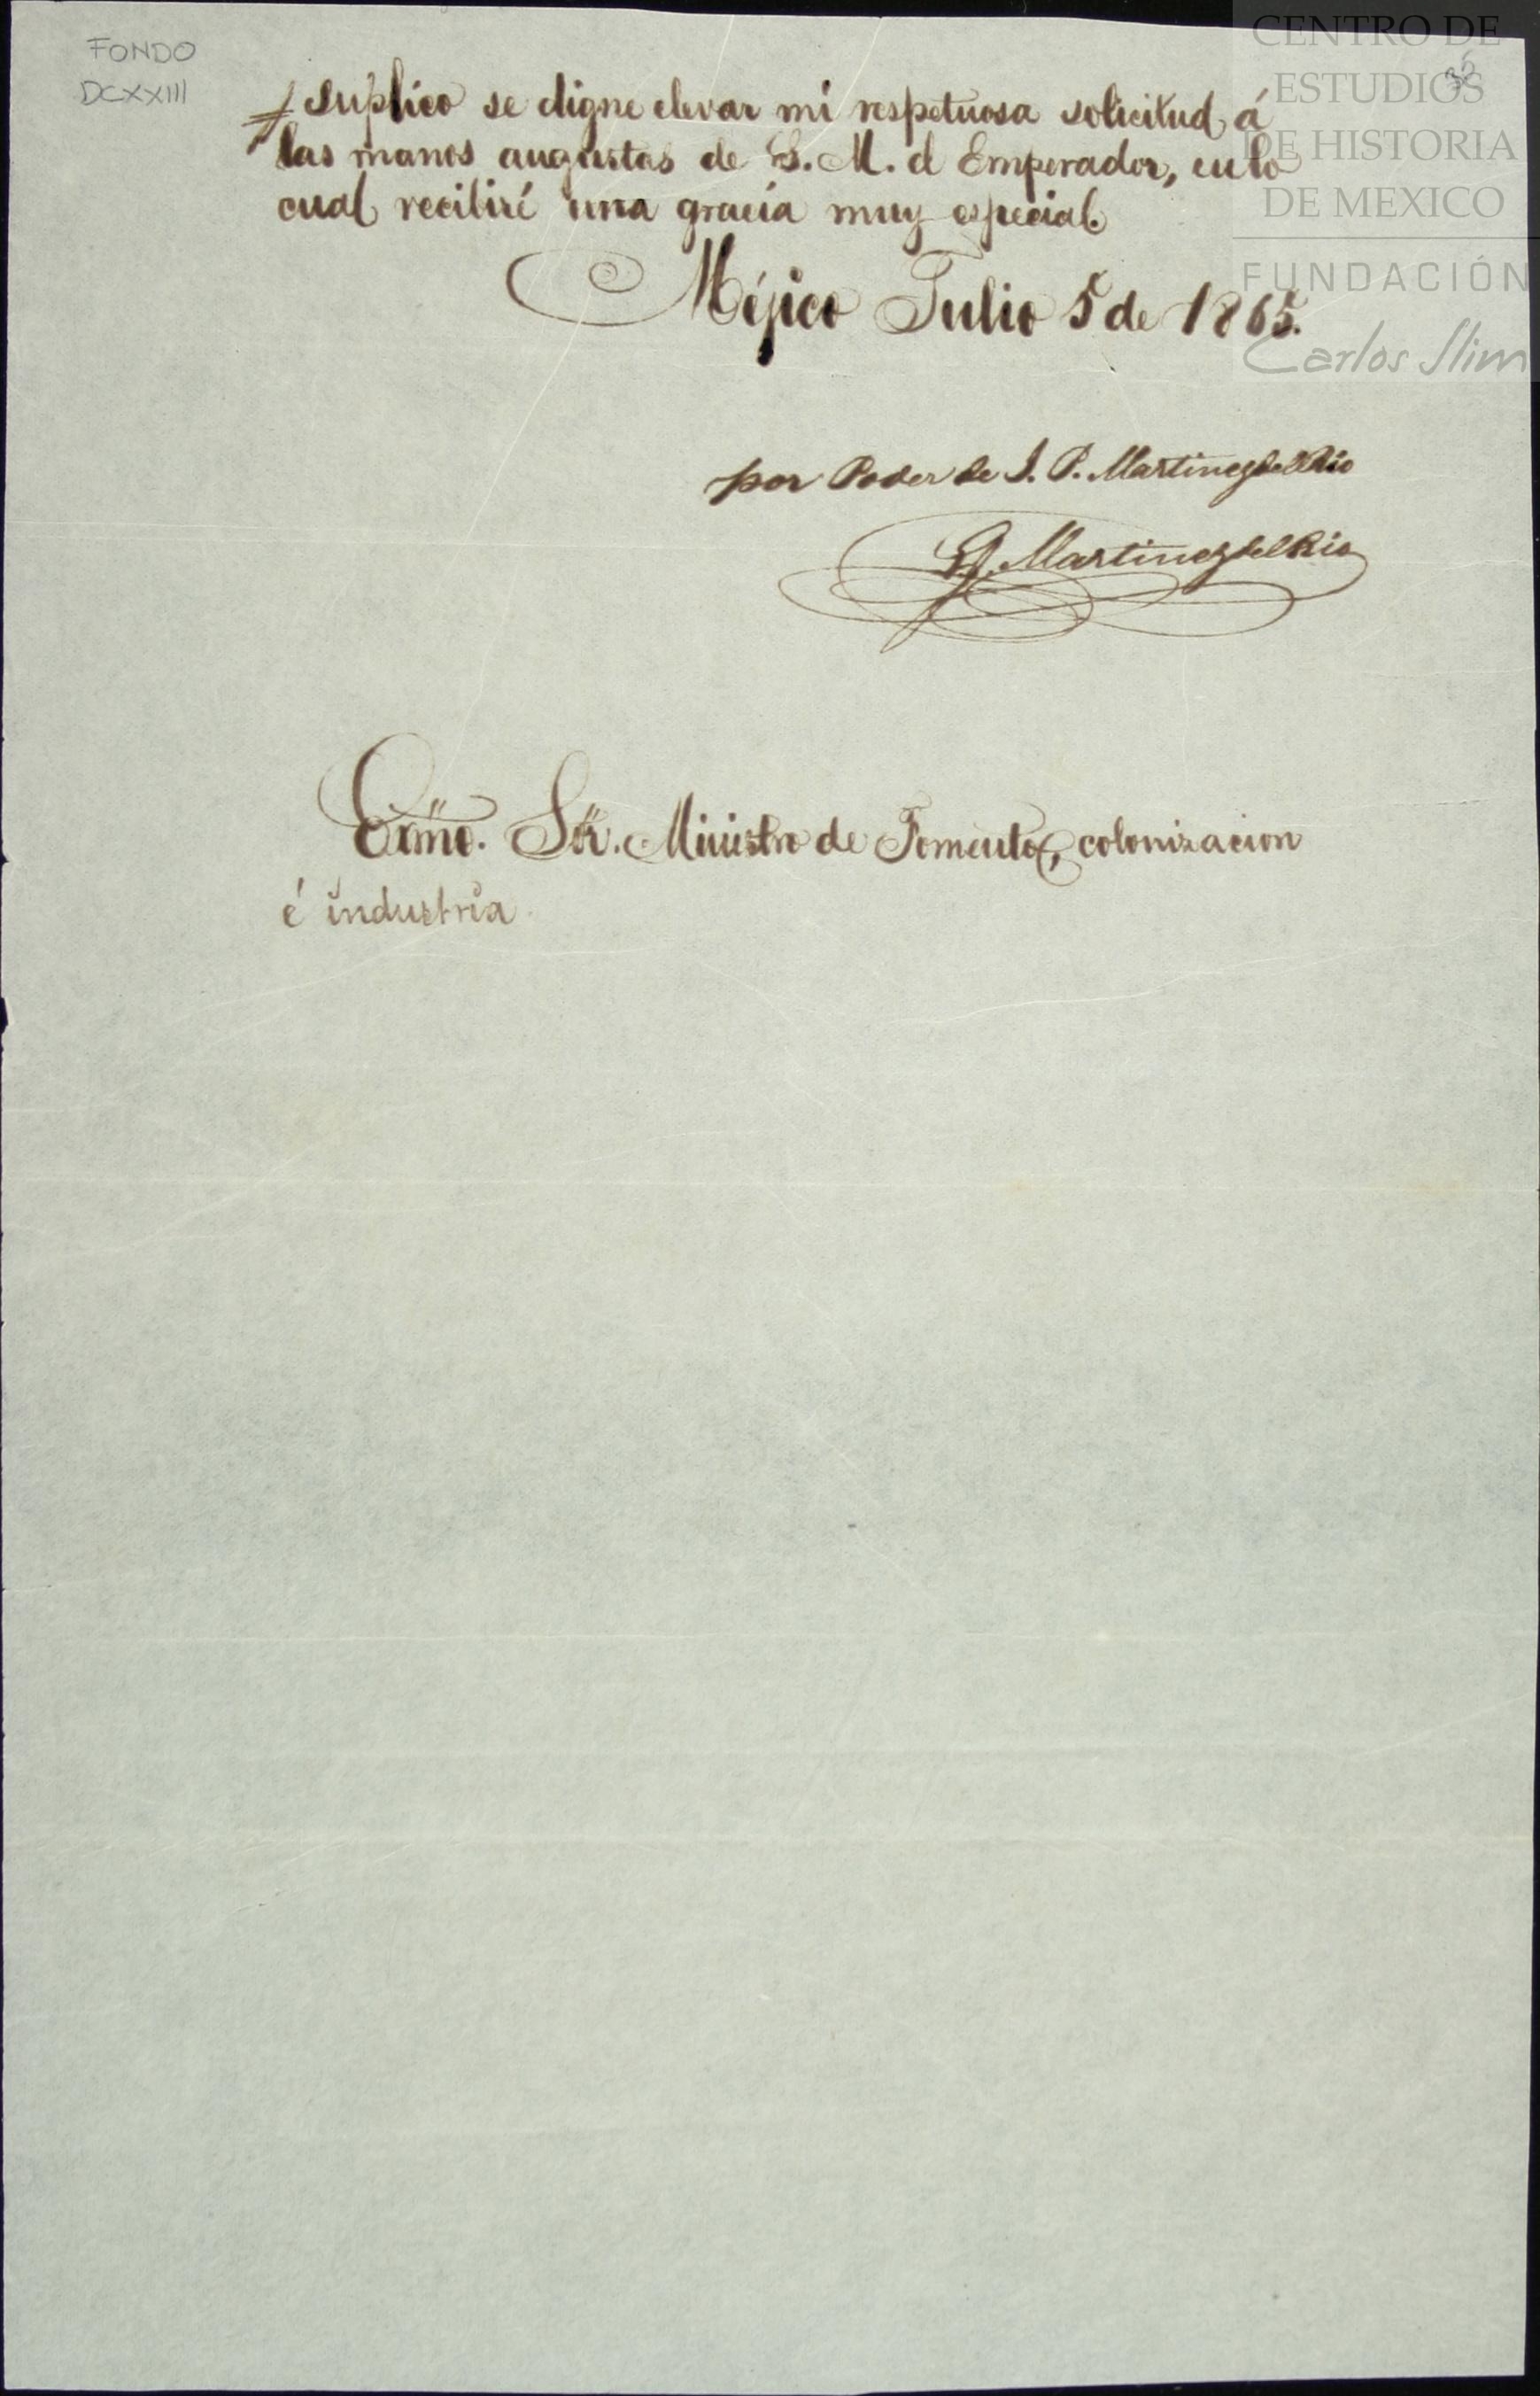 FONDO
DCXXIII
CENTRO DE
ESTUDIOS
DE HISTORIA
DE MEXICO
FUNDACIÓN
Carlos Slim
suplico se digne elevar mi respetuosa solicitud á
las manos augustas de S. M. el Emperador, en lo
cual recibiré una gracia muy especial.
Méjico Julio 5 de 1865.
por Poder de J. P. Martinez del Rio
G. Martinez del Rio
Exmo. Sör. Ministro de Fomento, colonizacion
é industria.